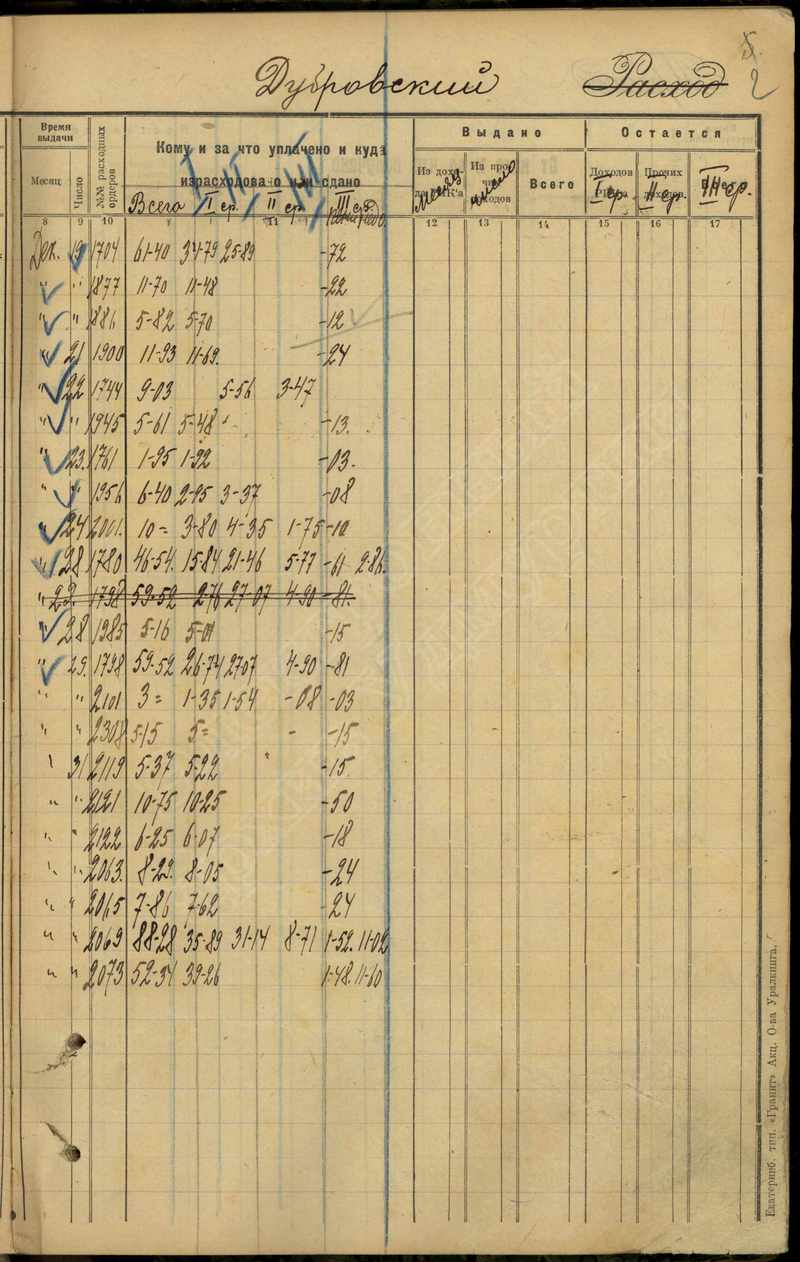 5.
Дубровский Расход 2
Время выдачи №№ расходных ордеров Кому и за что уплачено и куда израсходовано или сдано Выдано Остается
Месяц Число Всего I ср. II ср. III ср. Из Из Всего Доходов I ср. Прочих II ср. III ср.
8 9 10 11 12 13 14 15 16 17
Дек. 19 1704 61-40 34-79 25-89 -72
" " 1877 11-70 11-48 -22
" " 1886 5-82 5-70 -12
" 21 1900 11-93 11-69. -24
" 22 1744 9-03 5-56 3-47
" " 1945 5-61 5-48 -13.
" 23. 1761 1-95 1-92 -03.
" " 1956 6-40 2-95 3-37 -08
" 24 2001. 10 = 3-80 4-35 1-75 -10
" 28 1780 46-54. 15-84 21-46 5-77 -61 2-86.
" 22. 1798 59-52 2-76 27-07 4-90 -81.
" 28 1985 5-16 5-01 -15
" 29. 1798 59-52 26-74 27-07 4-90 -81
" " 2101 3 = 1-35 1-54 -08 -03
" " 2308 5-15 5 = - -15
" 31 2119 5-37 5-22 " -15.
" " 2121 10-75 10-25 -50
" " 2122 6-25 6-07 -18
" " 2063. 8-29. 8-05 -24
" " 2065 7-86 7-62 -24
" " 2069 88-28 35-89 31-14 8-71 1-52. 11-02
" " 2073 52-34 39-26 1-48. 11-60
Екатеринб. тип. «Гранит» Акц. О-ва Уралкнига.